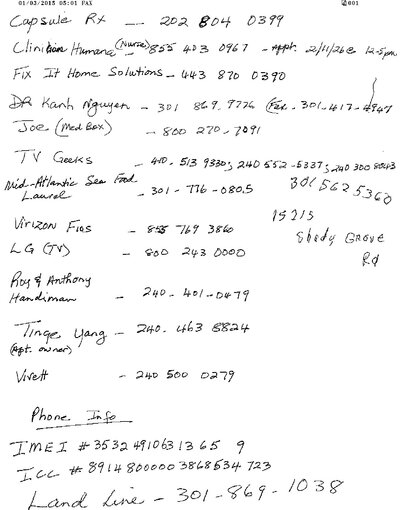 01/03/2015 05:01 FAX 001
Capsule Rx — 202 804 0399
Humana (Nurse) 855 403 0967 - Appt. 2/11/26 @ 12-5pm
Fix It Home Solutions - 443 870 0390
DR Kanh Nguyen - 301 869 9776 (Fax - 301-417-4947
Joe (Med Box) - 800 270-7091
TV Geeks - 410-513 9330; 240 552-5337; 240 300 8043
Mid-Atlantic Sea Food
Laurel - 301-776-0805
301 562 5360
15215
Shady Grove
Rd
Virizon Fios - 855 769 3860
LG (TV) - 800 243 0000
Roy & Anthony
Handiman - 240-401-0479
Tinge Yang - 240-463 8824
(Apt. owner)
Vivett - 240 500 0279
Phone Info
IMEI # 3532 491063 13 65 9
ICC # 8914 800000 3868534 723
Land Line - 301-869-1038